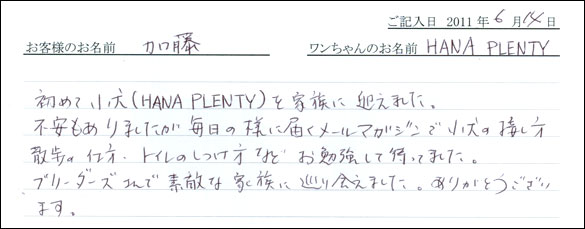 ご記入日 2011 年 6 月 14 日
お客様のお名前 加藤 ワンちゃんのお名前 HANA PLENTY
初めて小犬(HANA PLENTY)を家族に迎えました。
不安もありましたが毎日の様に届くメールマガジンで小犬の接し方
散歩の仕方・トイレのしつけ方など お勉強して待ってました。
ブリーダーズさんで素敵な家族に巡り会えました。ありがとうござい
ます。